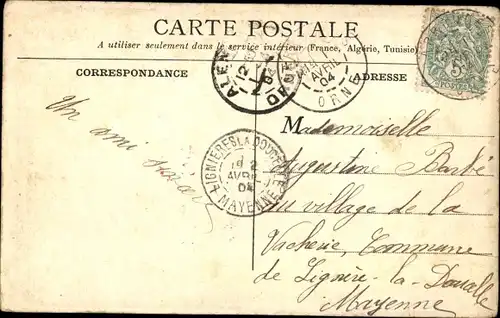 CARTE POSTALE
A utiliser seulement dans le service intérieur (France, Algérie, Tunisie)
CORRESPONDANCE
ADRESSE
Un ami
Mademoiselle
Augustine Barbé
au village de la
Vacherie, Commune
de Lignière-la-Doucelle
Mayenne
AVRIL
04
ORNE
LIGNIERES LA DOUCELLE
AVRIL
04
MAYENNE